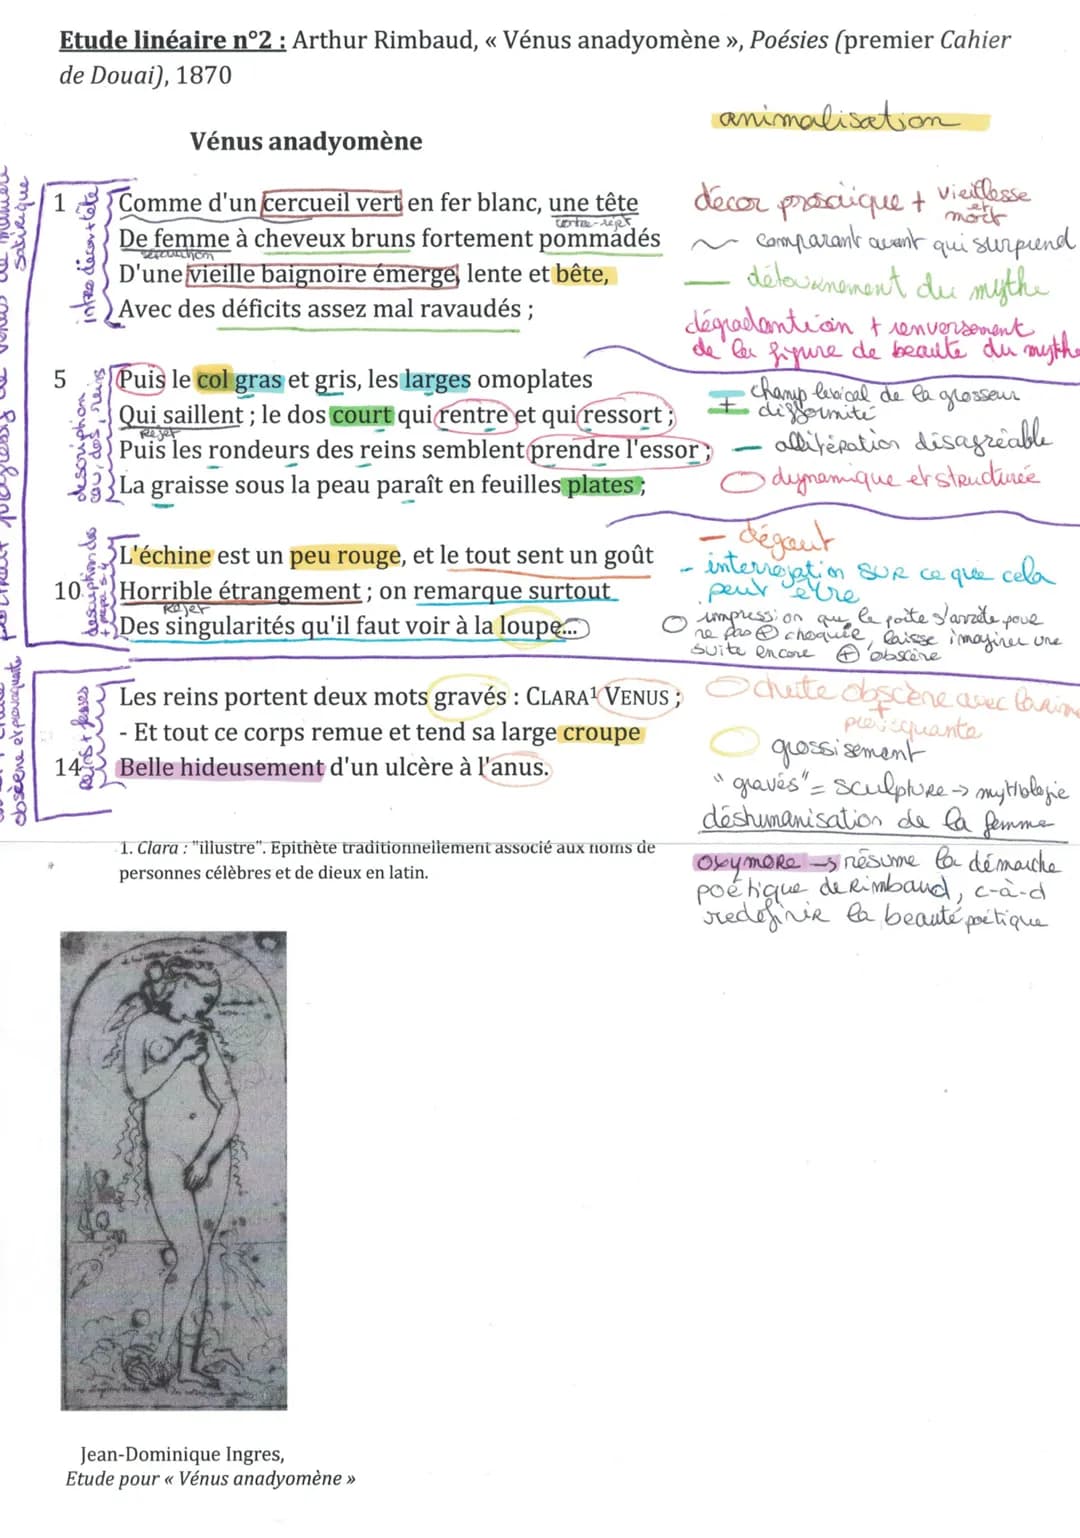 Etude linéaire n°2 : Arthur Rimbaud, « Vénus anadyomène », Poésies (premier Cahier
de Douai), 1870
animalisation
Vénus anadyomène
satirique
intro décor + tête
1 Comme d'un cercueil vert en fer blanc, une tête
contre-rejet
De femme à cheveux bruns fortement pommadés
D'une vieille baignoire émerge, lente et bête,
Avec des déficits assez mal ravaudés ;
décor prosaïque + vieillesse et mort
comparant avant qui surprend
détournement du mythe
dégradantion + renversement
de la figure de beauté du mythe
description cou, dos, reins
5 Puis le col gras et gris, les larges omoplates
Qui saillent ; le dos court qui rentre et qui ressort ;
Rejet
Puis les rondeurs des reins semblent prendre l'essor ;
La graisse sous la peau paraît en feuilles plates ;
+ champ lexical de la grosseur
difformité
- allitération disagréable
dynamique et structurée
description des
L'échine est un peu rouge, et le tout sent un goût
10 Horrible étrangement ; on remarque surtout
Rejet
Des singularités qu'il faut voir à la loupe...
- dégout
- interrogation sur ce que cela
peut être
impression que le poète s'arrête pour
ne pas + choquer, laisse imaginer une
suite encore + obscène
obscène et provoquante
reins + fesses
Les reins portent deux mots gravés : CLARA¹ VENUS ;
- Et tout ce corps remue et tend sa large croupe
14 Belle hideusement d'un ulcère à l'anus.
chute obscène avec la rime
+
provoquante
grossisement
"gravés" = sculpture → mythologie
déshumanisation de la femme
oxymore → résume la démarche
poétique de Rimbaud, c-à-d
redefinir la beauté poétique
1. Clara : "illustre". Epithète traditionnellement associé aux noms de
personnes célèbres et de dieux en latin.
Jean-Dominique Ingres,
Etude pour « Vénus anadyomène »